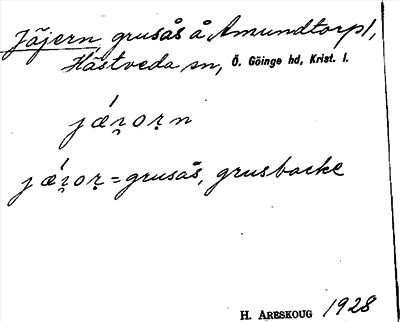 Jäjern, grusås å Amundtorp,
Hästveda sn, Ö. Göinge hd, Krist. l.
jǽn̥oṛn
jǽn̥oṛ = grusås, grusbacke
H. Areskoug 1928